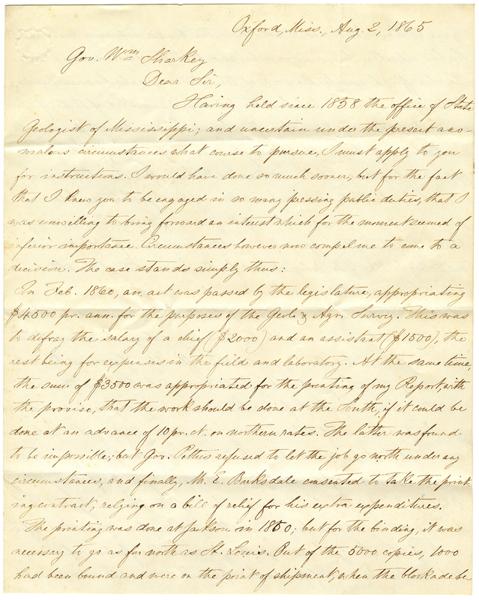 Oxford, Miss., Aug. 2, 1865
Gov. Wm Sharkey
Dear Sir,
Having held since 1858 the office of State
Geologist of Mississippi; and uncertain under the present ano-
malous circumstances what course to pursue, I must apply to you
for instructions. I would have done so much sooner, but for the fact
that I knew you to be engaged in so many pressing public duties, that I
was unwilling to bring forward an interest which for the moment seemed of
inferior importance. Circumstances however now compel me to come to a
decision. The case stands simply thus:
In Feb. 1860, an act was passed by the legislature, appropriating
$4500 pr. ann. for the purposes of the Geol. & Agr. Survey. This was
to defray the salary of a chief ($2000) and an assistant ($1500), the
rest being for expenses in the field and laboratory. At the same time,
the sum of $3500 was appropriated for the printing of my Report, with
the proviso, that the work should be done at the South, if it could be
done at an advance of 10 pr. ct. on northern rates. The latter was found
to be impossible; but Gov. Pettus refused to let the job go north under any
circumstances, and finally, Mr. E. Barksdale consented to take the print
ing contract, relying on a bill of relief for his extra expenditures.
The printing was done at Jackson in 1860; but for the binding, it was
necessary to go as far north as St. Louis. Out of the 5000 copies, 1000
had been bound and were on the point of shipment, when the blockade be